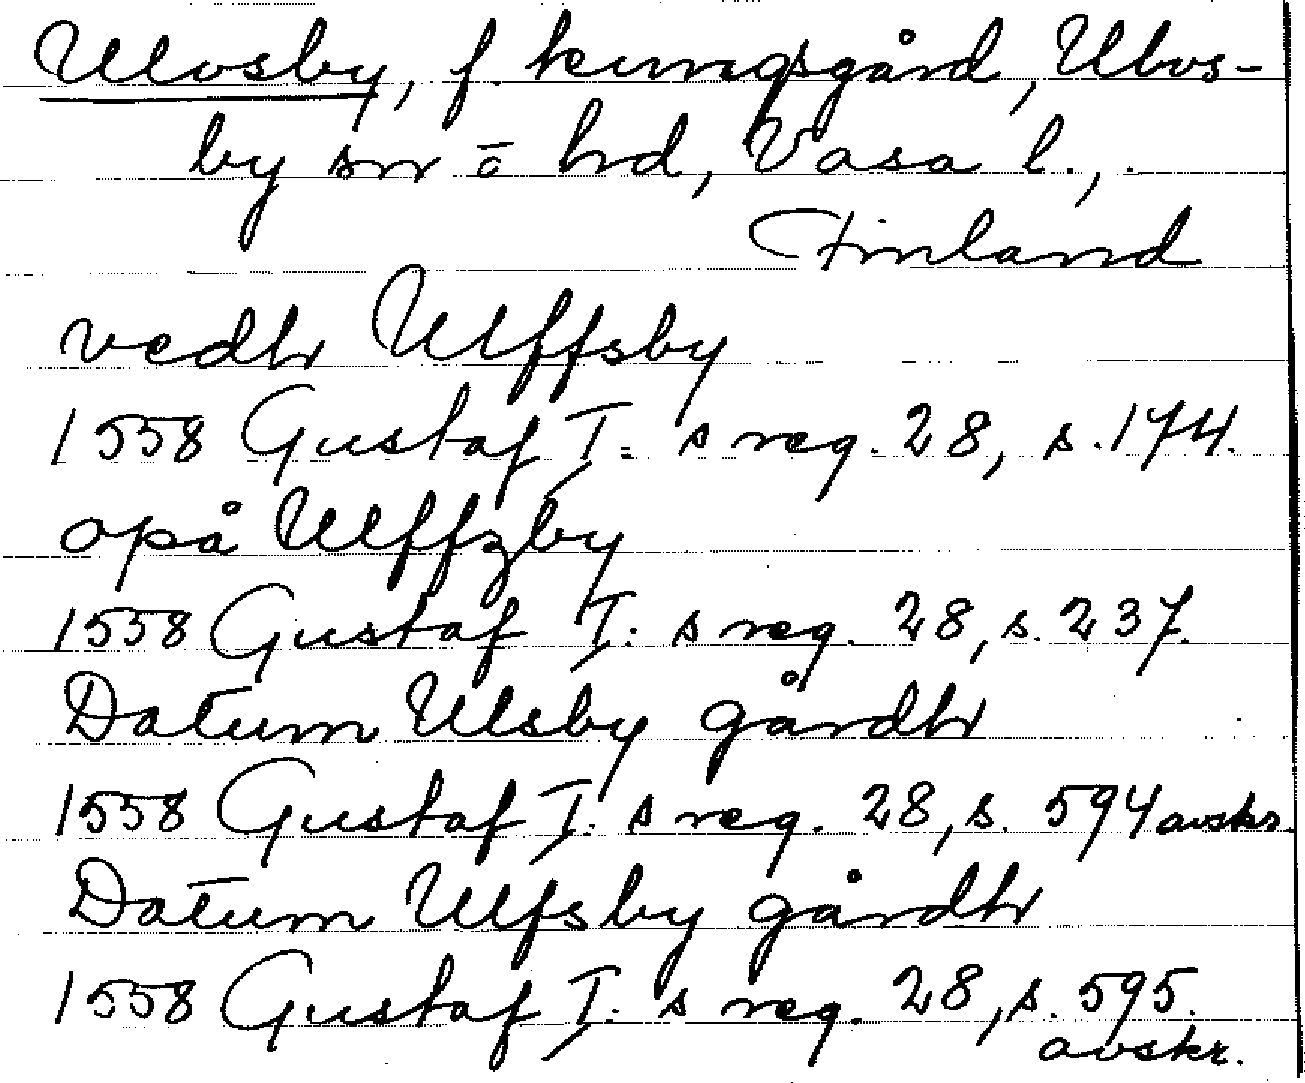 Ulvsby, f. kungsgård, Ulvs-
by sn o hd, Vasa l.,
Finland
vedh Ulffsby
1558 Gustaf I:s reg. 28, s. 174.
opå Ulffzby
1558 Gustaf I:s reg. 28, s. 237.
Datum Ulsby gårdh
1558 Gustaf I:s reg. 28, s. 594 avskr.
Datum Ulfsby gårdh
1558 Gustaf I:s reg. 28, s. 595.
avskr.